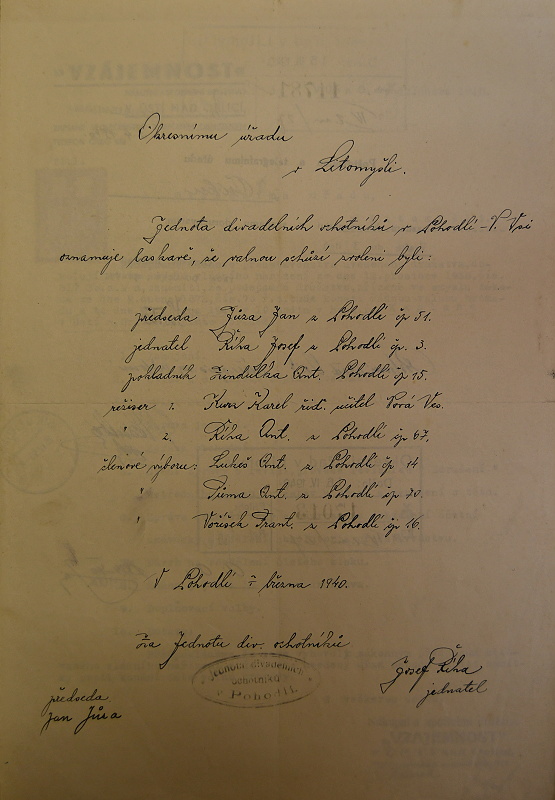 Okresnímu úřadu
v Litomyšli.
Jednota divadelních ochotníků v Pohodlí - N. Vsi
oznamuje laskavě, že valnou schůzí zvoleni byli:
předseda Jůza Jan z Pohodlí čp 51.
jednatel Říha Josef z Pohodlí čp. 3.
pokladník Zindulka Ant. Pohodlí čp 15.
režiser 1. Kurz Karel říd. učitel Nová Ves.
" 2. Říha Ant. z Pohodlí čp 67.
členové výboru: Lukeš Ant. z Pohodlí čp 14
" Tůma Ant. z Pohodlí čp 70.
" Voříšek Frant. z Pohodlí čp 16.
V Pohodlí března 1940.
Za Jednotu div. ochotníků
Jednota divadelních
ochotníků
v Pohodlí.
Josef Říha
jednatel
předseda
Jan Jůza